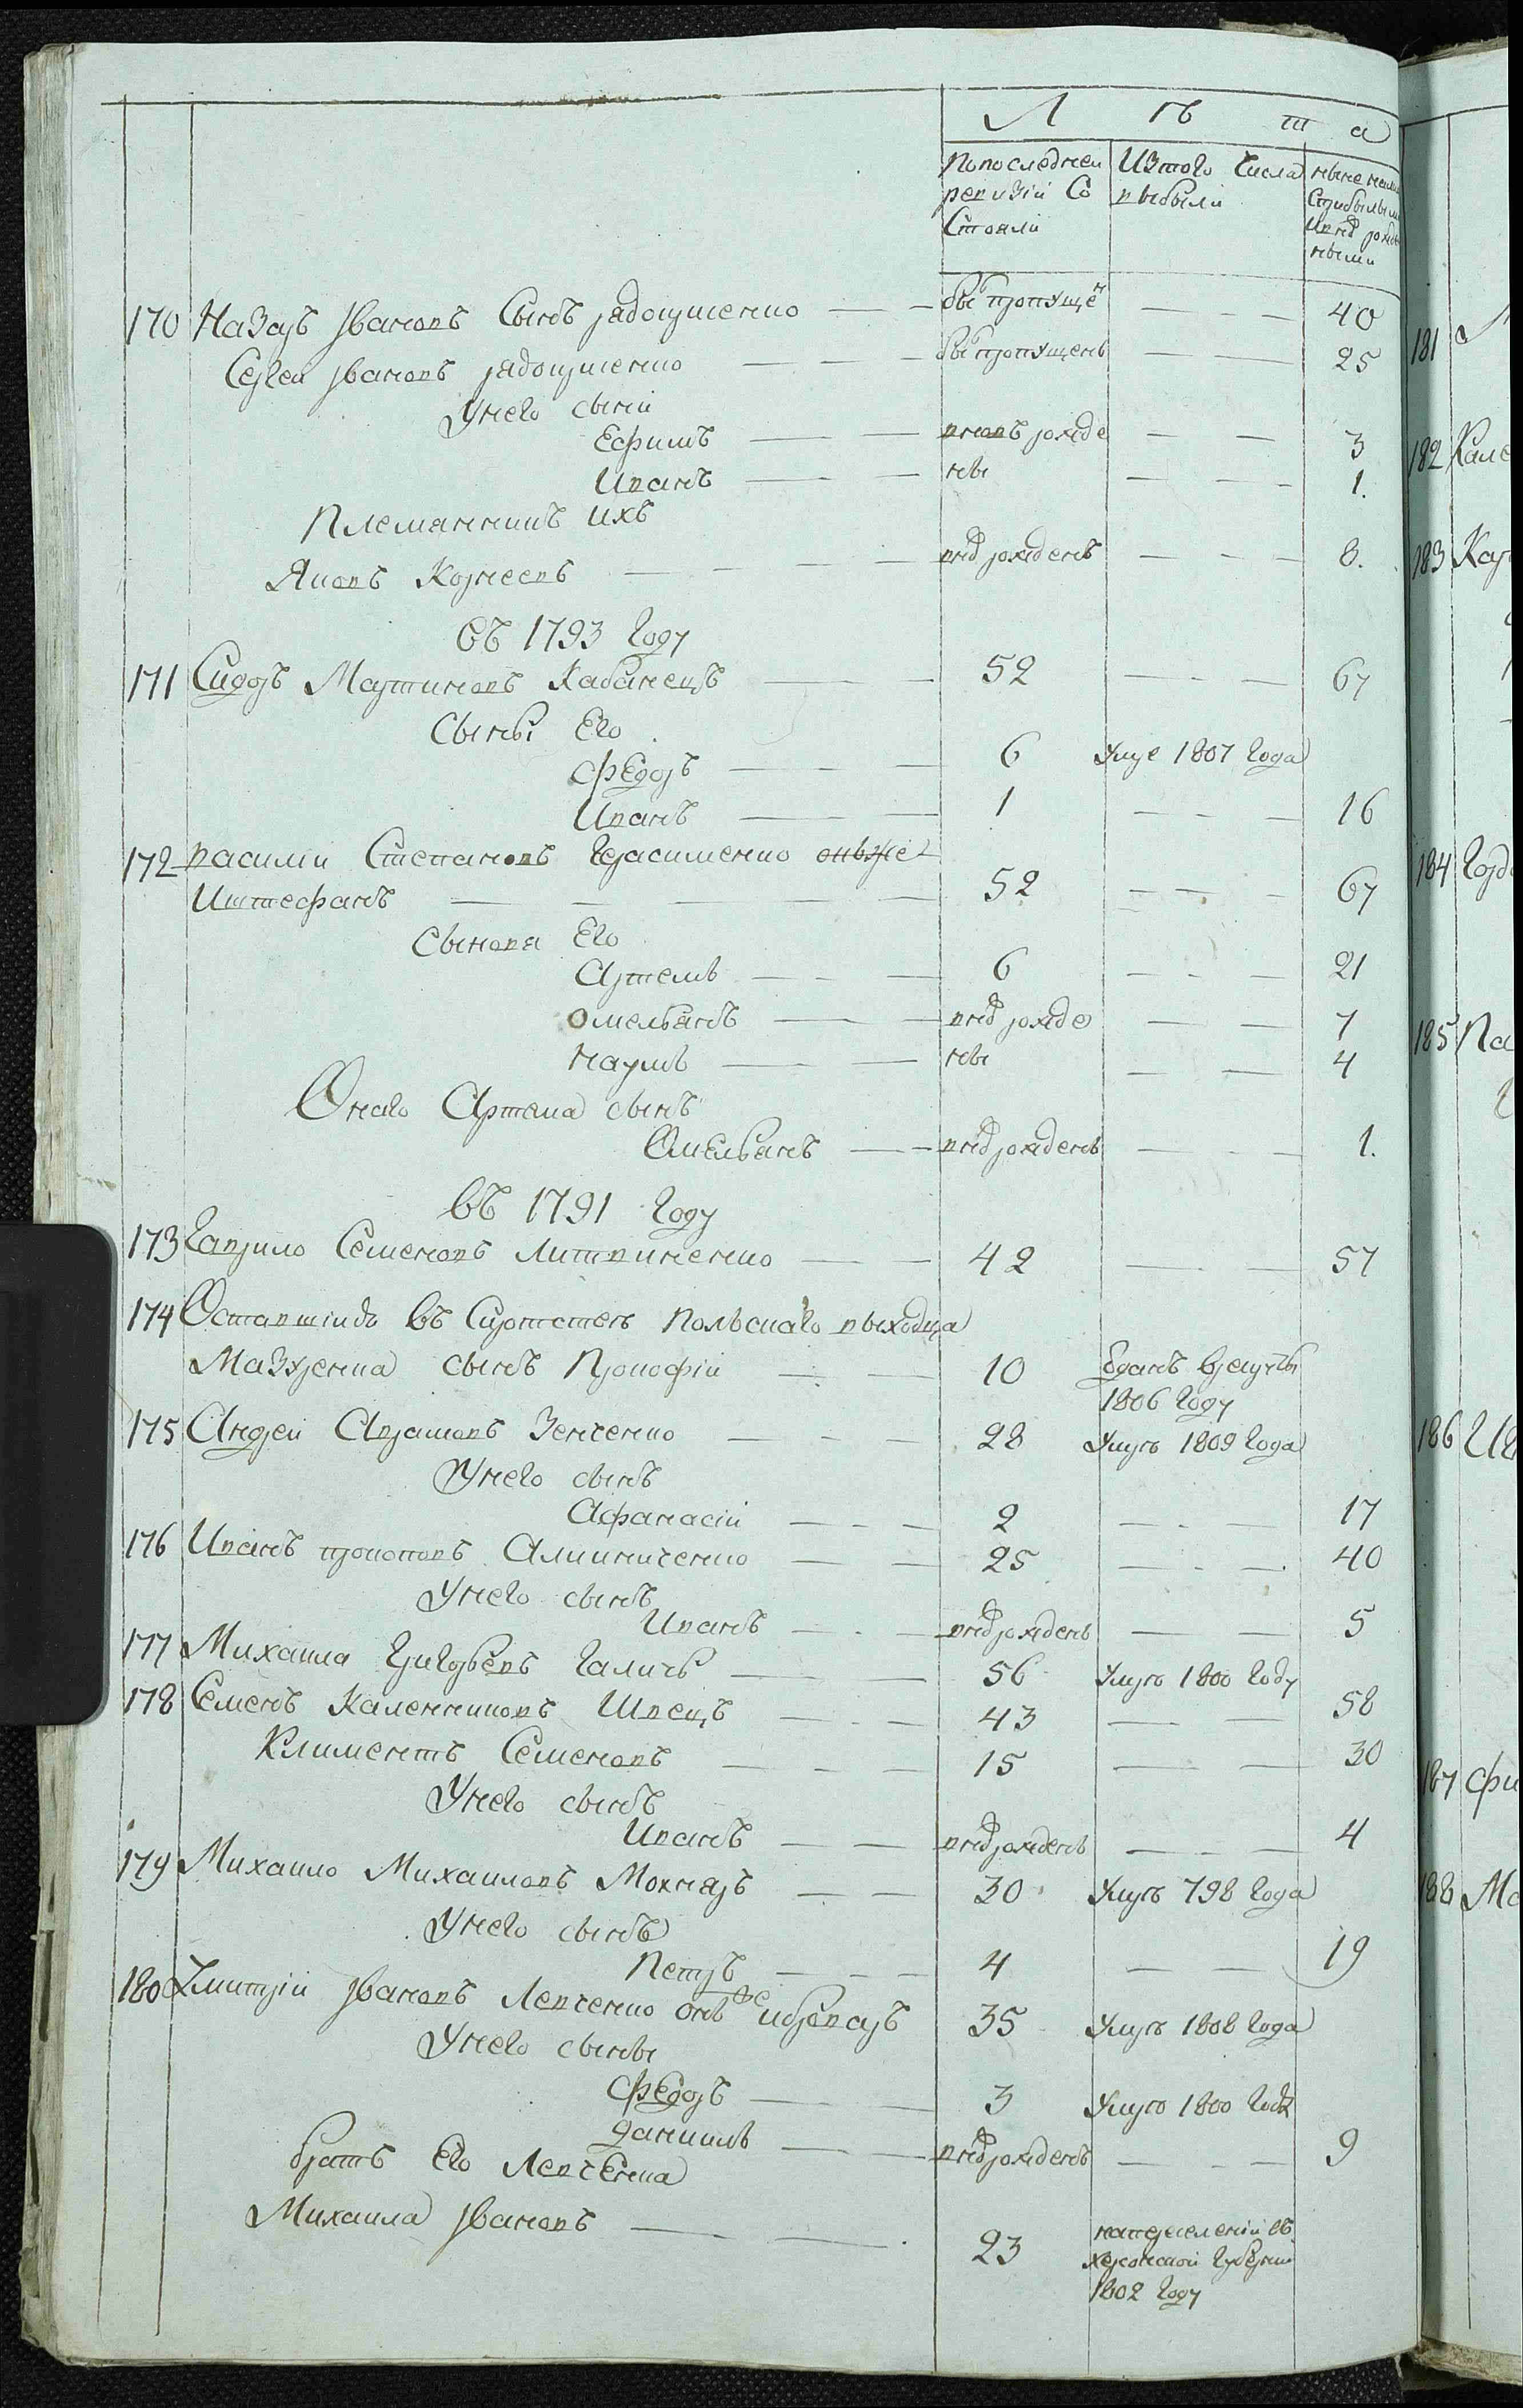 Л ѣ т а
По последнеи Изтого числа ныне налицо
ревизіи Со выбыли
Стояли
170 Назаръ Ивановъ Сынъ радоушенко — бы пропуще — 40
Сергеи Ивановъ радоушенко — бы пропущенъ — 25
Унего сыни
Ефимъ — вновъ рожде — 3
Иванъ — ны — 1.
Племянникъ ихъ
Яковъ Корнеевъ — внѡ рожденъ — 8.
въ 1793 году
171 Сидоръ Мартиновъ Кабанецъ — 52 — 67
Сынві Его
Федоръ — 6 Умре 1807 года
Иванъ — 1 — 16
172 василіи Степановъ Герасименко онъже
Иштефанъ — 52 — 67
Сыновя Его
Артемъ — 6 — 21
Омельянъ — внѡ рожде — 7
Наумъ — ны — 4
Онаго Артема сынъ
Омельянъ — внѡ рожденъ — 1.
въ 1791 году
173 Гаврило Семеновъ Литвиненко — 42 — 57
174 Оставшіидь въ Сиротстве польскаго выходца
Мазуренка сынъ Прокофіи — 10 Еданъ врекруты
1806 году
175 Андреи Аврамовъ Зенченко — 28 Умръ 1809 года
Унего сынъ
Афанасіи — 2 — 17
176 Иванъ прокоповъ Алииниченко — 25 — 40
Унего сынъ
Иванъ — внѡ рожденъ — 5
177 Михаила Григорьевъ Галичъ — 56 Умръ 1800 году
178 Семенъ Каленниковъ Швецъ — 43 — 58
Климентъ Семеновъ — 15 — 30
Унего сынъ
Иванъ — внѡ рожденъ — 4
179 Михаило Михаиловъ Мохнаръ — 30 Умръ 798 года
Унего сынъ
Петръ — 4 — 19
180 Дмитріи Ивановъ Левченко онъ же — 35 Умръ 1808 года
Унего сынвы
Федоръ — 3 Умръ 1800 года
даниилъ — внѡ рожденъ — 9
братъ Его Левченка
Михаила Ивановъ — 23 напереселеніи въ
херсонской губерніи
1802 году
181
182 Кале
183 Кар
184 Горд
185 Па
186 Ив
187 Фи
188 Ма